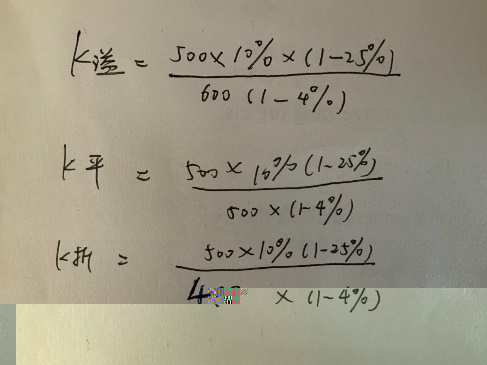 K溢 = 500×10%×(1-25%)
600 (1-4%)
K平 = 500×10%(1-25%)
500×(1-4%)
K折 = 500×10%(1-25%)
× (1-4%)